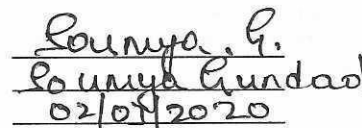 Soumya . G.
Soumya Gundad
02/03/2020